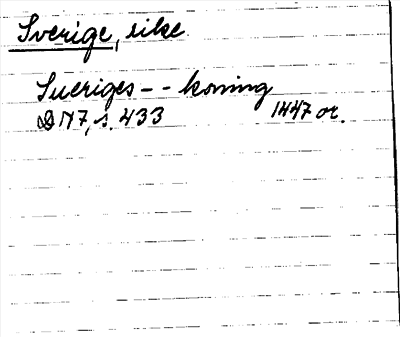 Sverige, rike
Sueriges - - koning
DN 7, s. 433 1447 or.